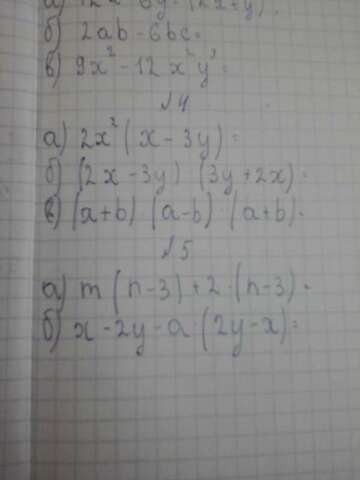 б) 2ab - 6bc =
в) 9x² - 12x²y³ =
№4
а) 2x²(x - 3y) =
б) (2x - 3y) (3y + 2x) =
в) (a+b) (a-b) (a+b) =
№5
а) m(n-3) + 2·(n-3) =
б) x - 2y - a·(2y - x) =